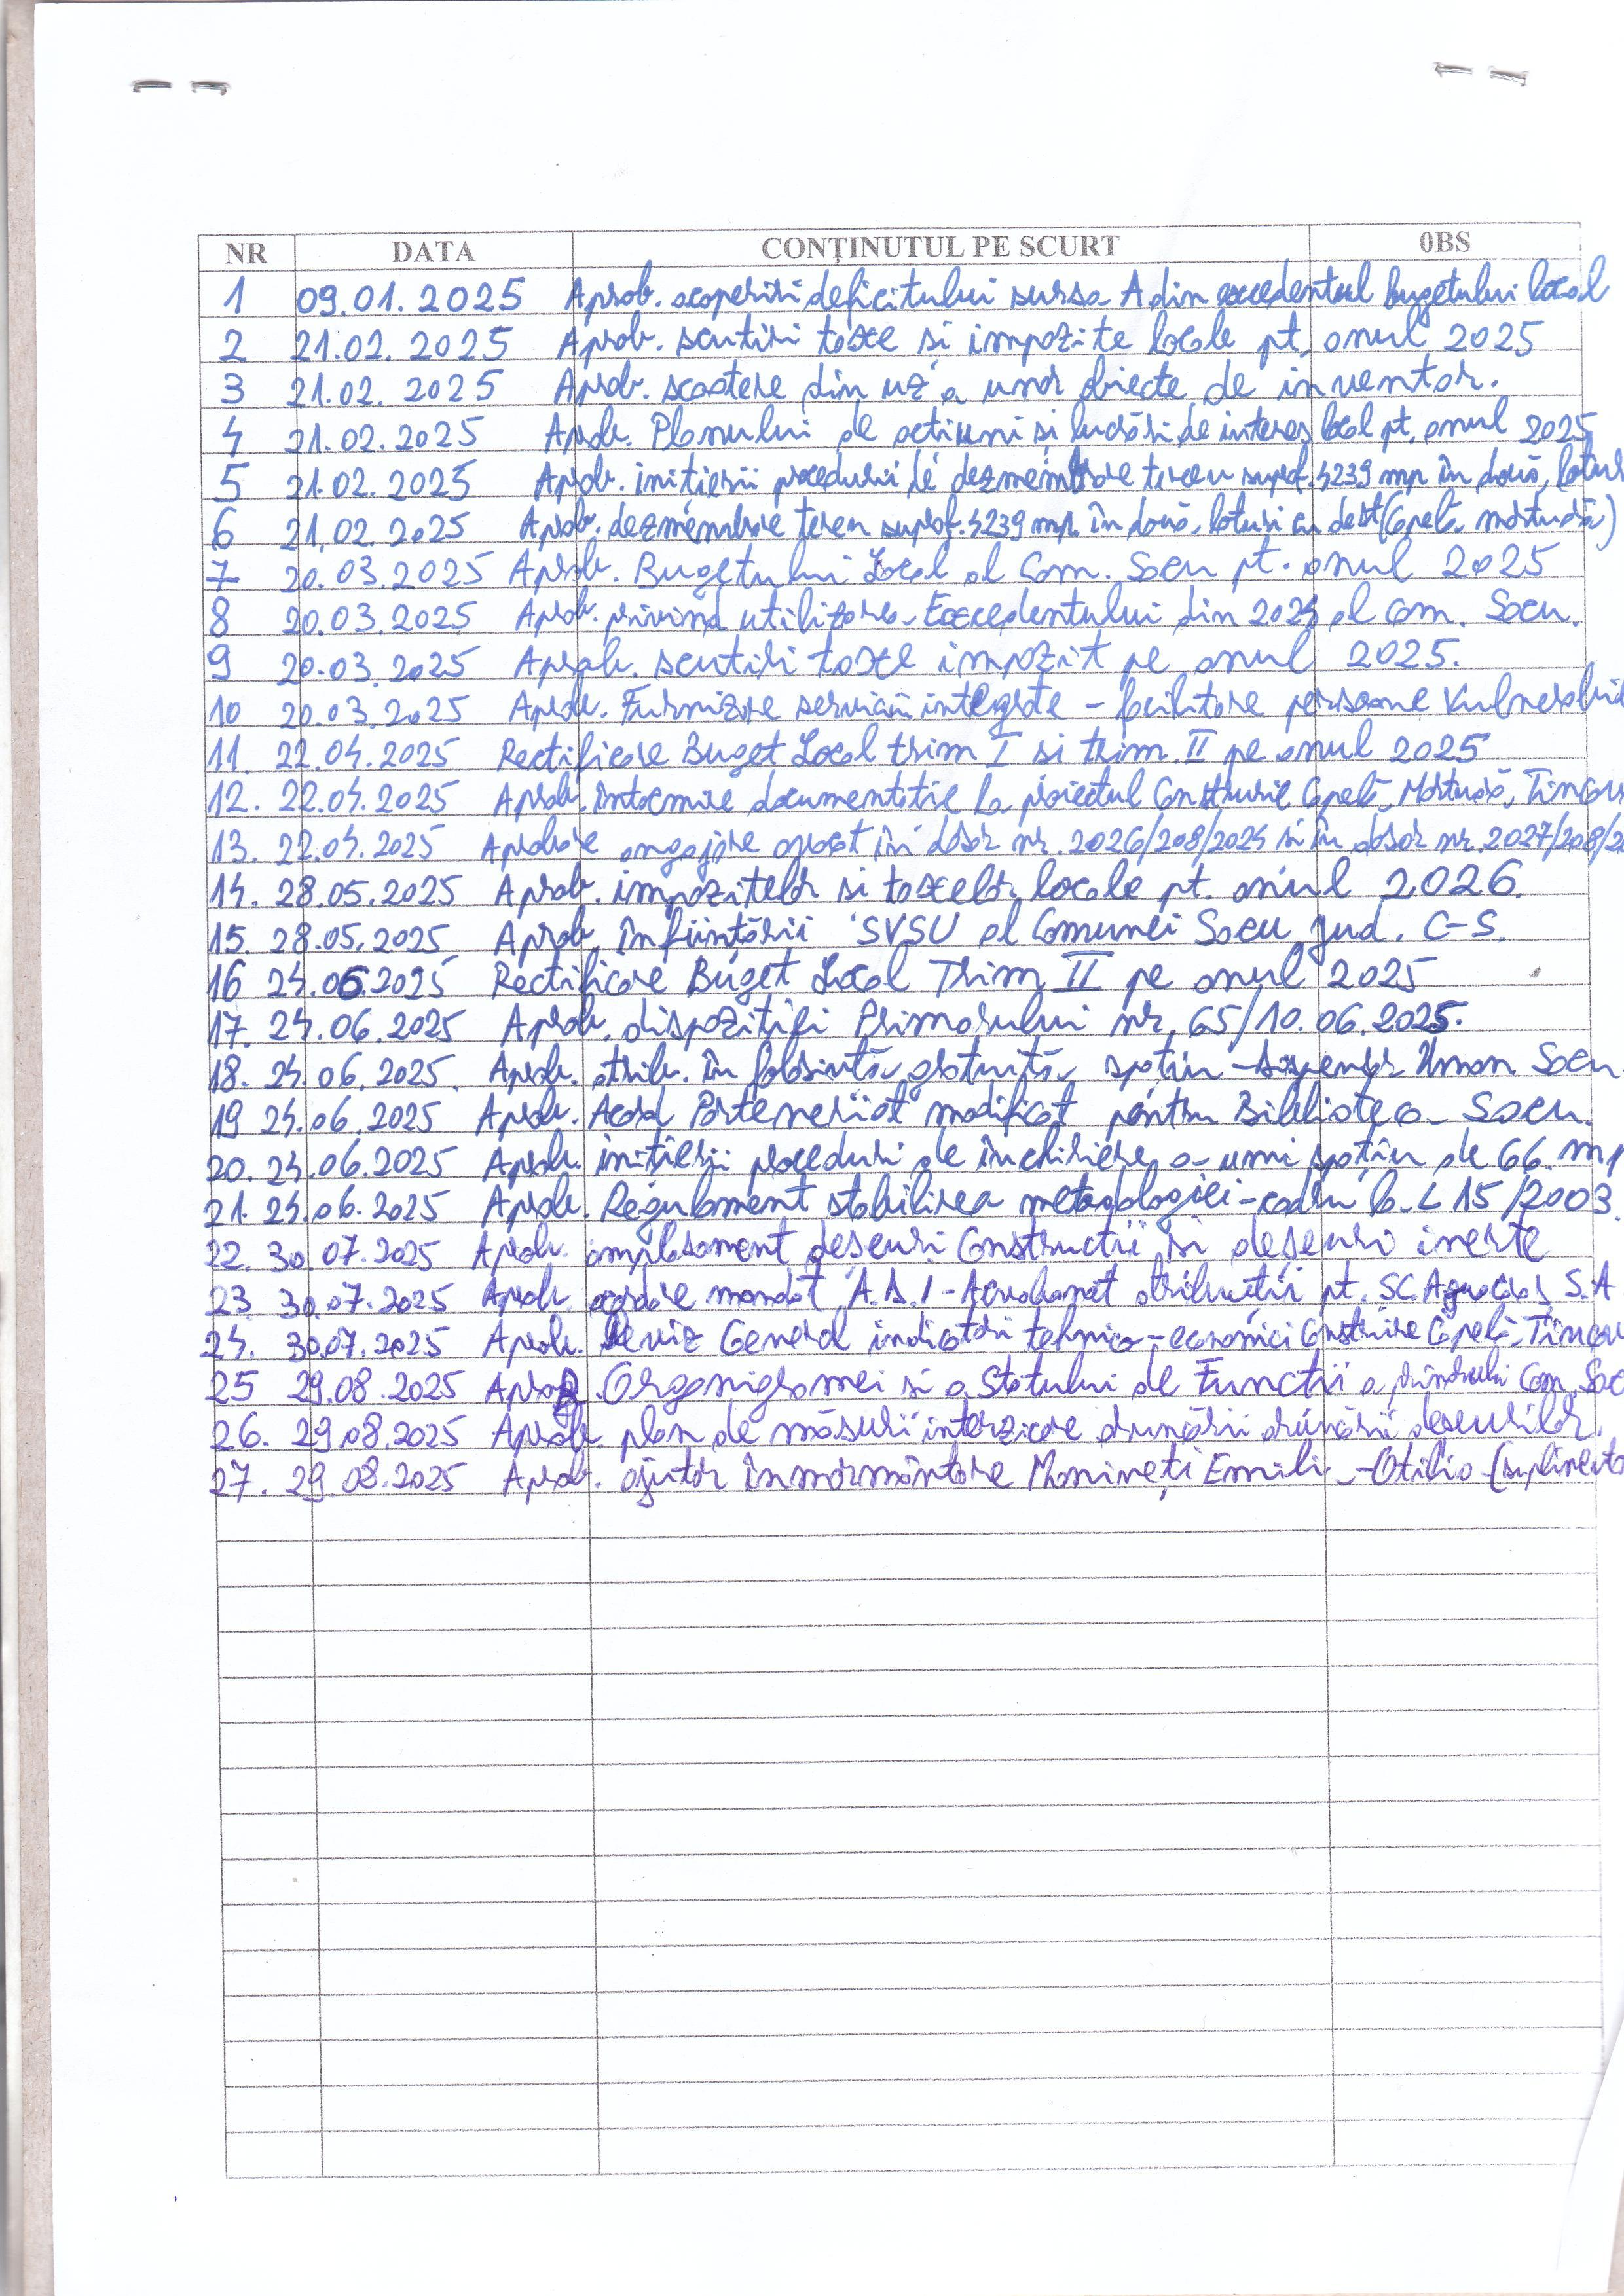 NR DATA CONŢINUTUL PE SCURT 0BS
1 09.01.2025 Aprob. acoperirii deficitului sursa A din excedentul bugetului local
2 21.02.2025 Aprob. scutiri taxe si impozite locale pt. anul 2025
3 21.02.2025 Aprob. scoatere din uz a unor obiecte de inventar.
4 21.02.2025 Aprob. Planului de actiuni si lucrări de interes local pt. anul 2025
5 21.02.2025 Aprob. initierii procedurii de dezmembrare teren supraf. 4239 mp în două loturi
6 21.02.2025 Aprob. dezmembrare teren supraf. 4239 mp. în două loturi cu dest (Capelă mortuară)
7 20.03.2025 Aprob. Bugetului Local al Com. Sacu pt. anul 2025
8 20.03.2025 Aprob. privind utilizarea Excedentului din 2024 al Com. Sacu.
9 20.03.2025 Aprob. scutiri taxe impozit pe anul 2025.
10 20.03.2025 Aprob. Furnizare servicii integrate - facilitare persoane Vulnerabile
11. 22.04.2025 Rectificare Buget Local trim I si trim. II pe anul 2025
12. 22.04.2025 Aprob. întocmire documentatie la proiectul Construire Capelă Mortuară, Tincova
13. 22.04.2025 Aprobare angajare avocat în dosar nr. 2026/208/2024 si în dosar nr. 2027/208/2
14. 28.05.2025 Aprob. impozitelor si taxelor locale pt. anul 2026.
15. 28.05.2025 Aprob. înfiintării SVSU al Comunei Sacu jud. C-S.
16 24.06.2025 Rectificare Buget Local Trim II pe anul 2025
17. 24.06.2025 Aprob. dispoziției Primarului nr. 65/10.06.2025.
18. 24.06.2025. Aprob. atrib. în folosintă gratuită spatiu - Dispensar Uman Sacu
19 24.06.2025 Aprob. Acord Parteneriat modificat pentru Biblioteca Sacu.
20. 24.06.2025 Aprob. inițierii proceduri de închiriere a unui spatiu de 66. mp
21. 24.06.2025 Aprob. Regulament stabilirea metodologiei - cadru la L 15/2003.
22. 30.07.2025 Aprob. amplasament deseuri Constructii si deșeuri inerte
23 30.07.2025 Aprob. acordare mandat A.D.I - Acvabanat atributii pt. SC. Aquacaras S.A
24. 30.07.2025 Aprob. Deviz General indicatori tehnico-economici Construire Capelă Tincova
25 29.08.2025 Aprob. Organigramei si a Statului de Functii a primarului Com. Sac
26. 29.08.2025 Aprob. plan de măsuri interzicere aruncării deseurilor.
27. 29.08.2025 Aprob. ajutor înmormântare Manimeți Emilia-Otilia (supliment